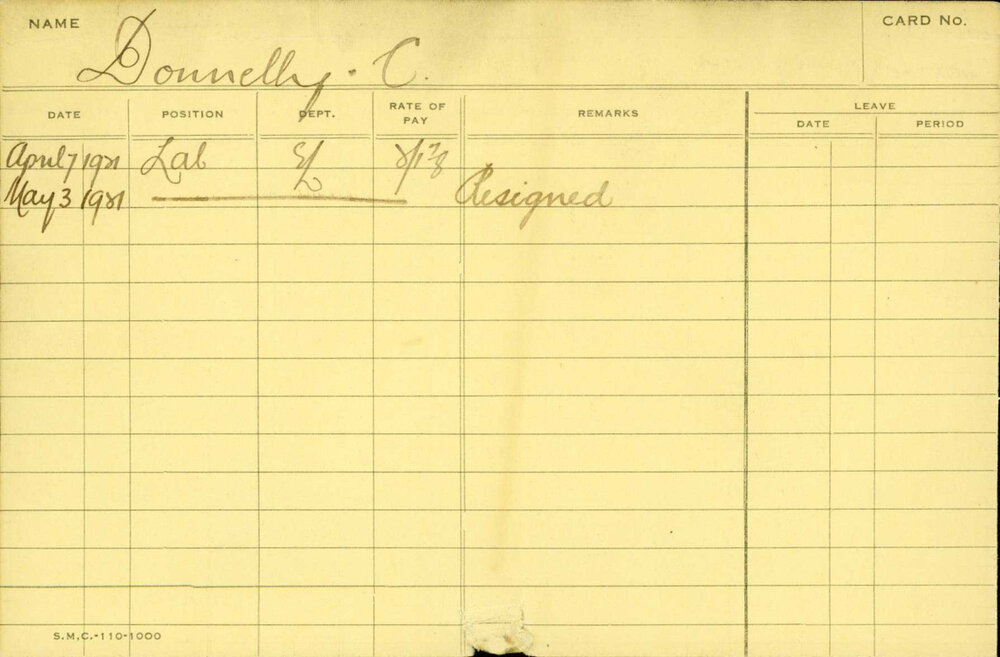 NAME Donnelly. C. CARD No.
DATE POSITION DEPT. RATE OF PAY REMARKS LEAVE
DATE PERIOD
April 7 1921 Lab
May 3 1921 Resigned
S.M.C.-110-1000